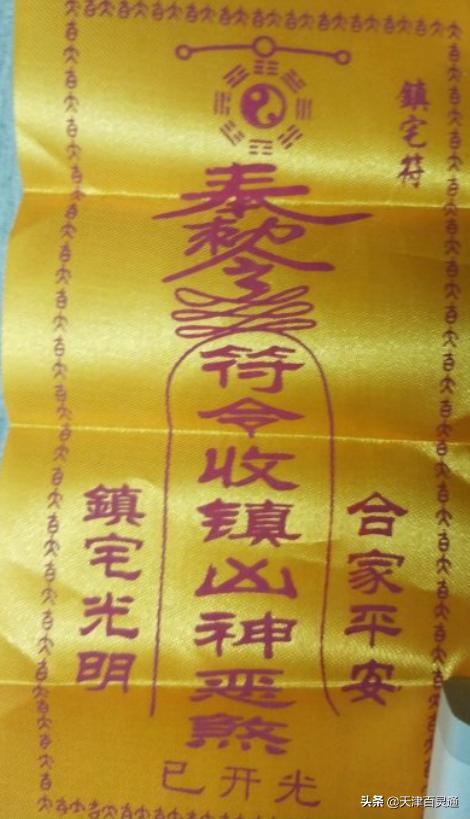 鎮宅符
奉勅令
符令收镇凶神恶煞
合家平安
鎮宅光明
已开光
头条 @天津百灵通